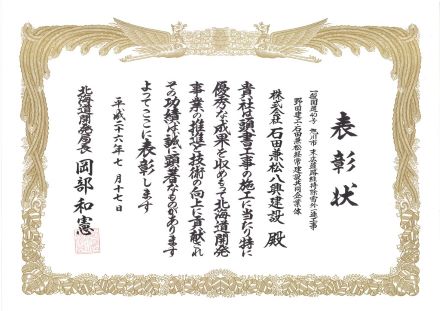 表彰状
一般国道40号 旭川市 末広道路維持除雪外一連工事
野田建工・石田兼松経常建設共同企業体
株式会社 石田兼松八興建設 殿
貴社は頭書工事の施工に当たり特に
優秀な成果を収めもって北海道開発
事業の推進と技術の向上に貢献され
その功績は誠に顕著なものがあります
よってここに表彰します
平成二十六年七月十七日
北海道開発局長 岡部和憲